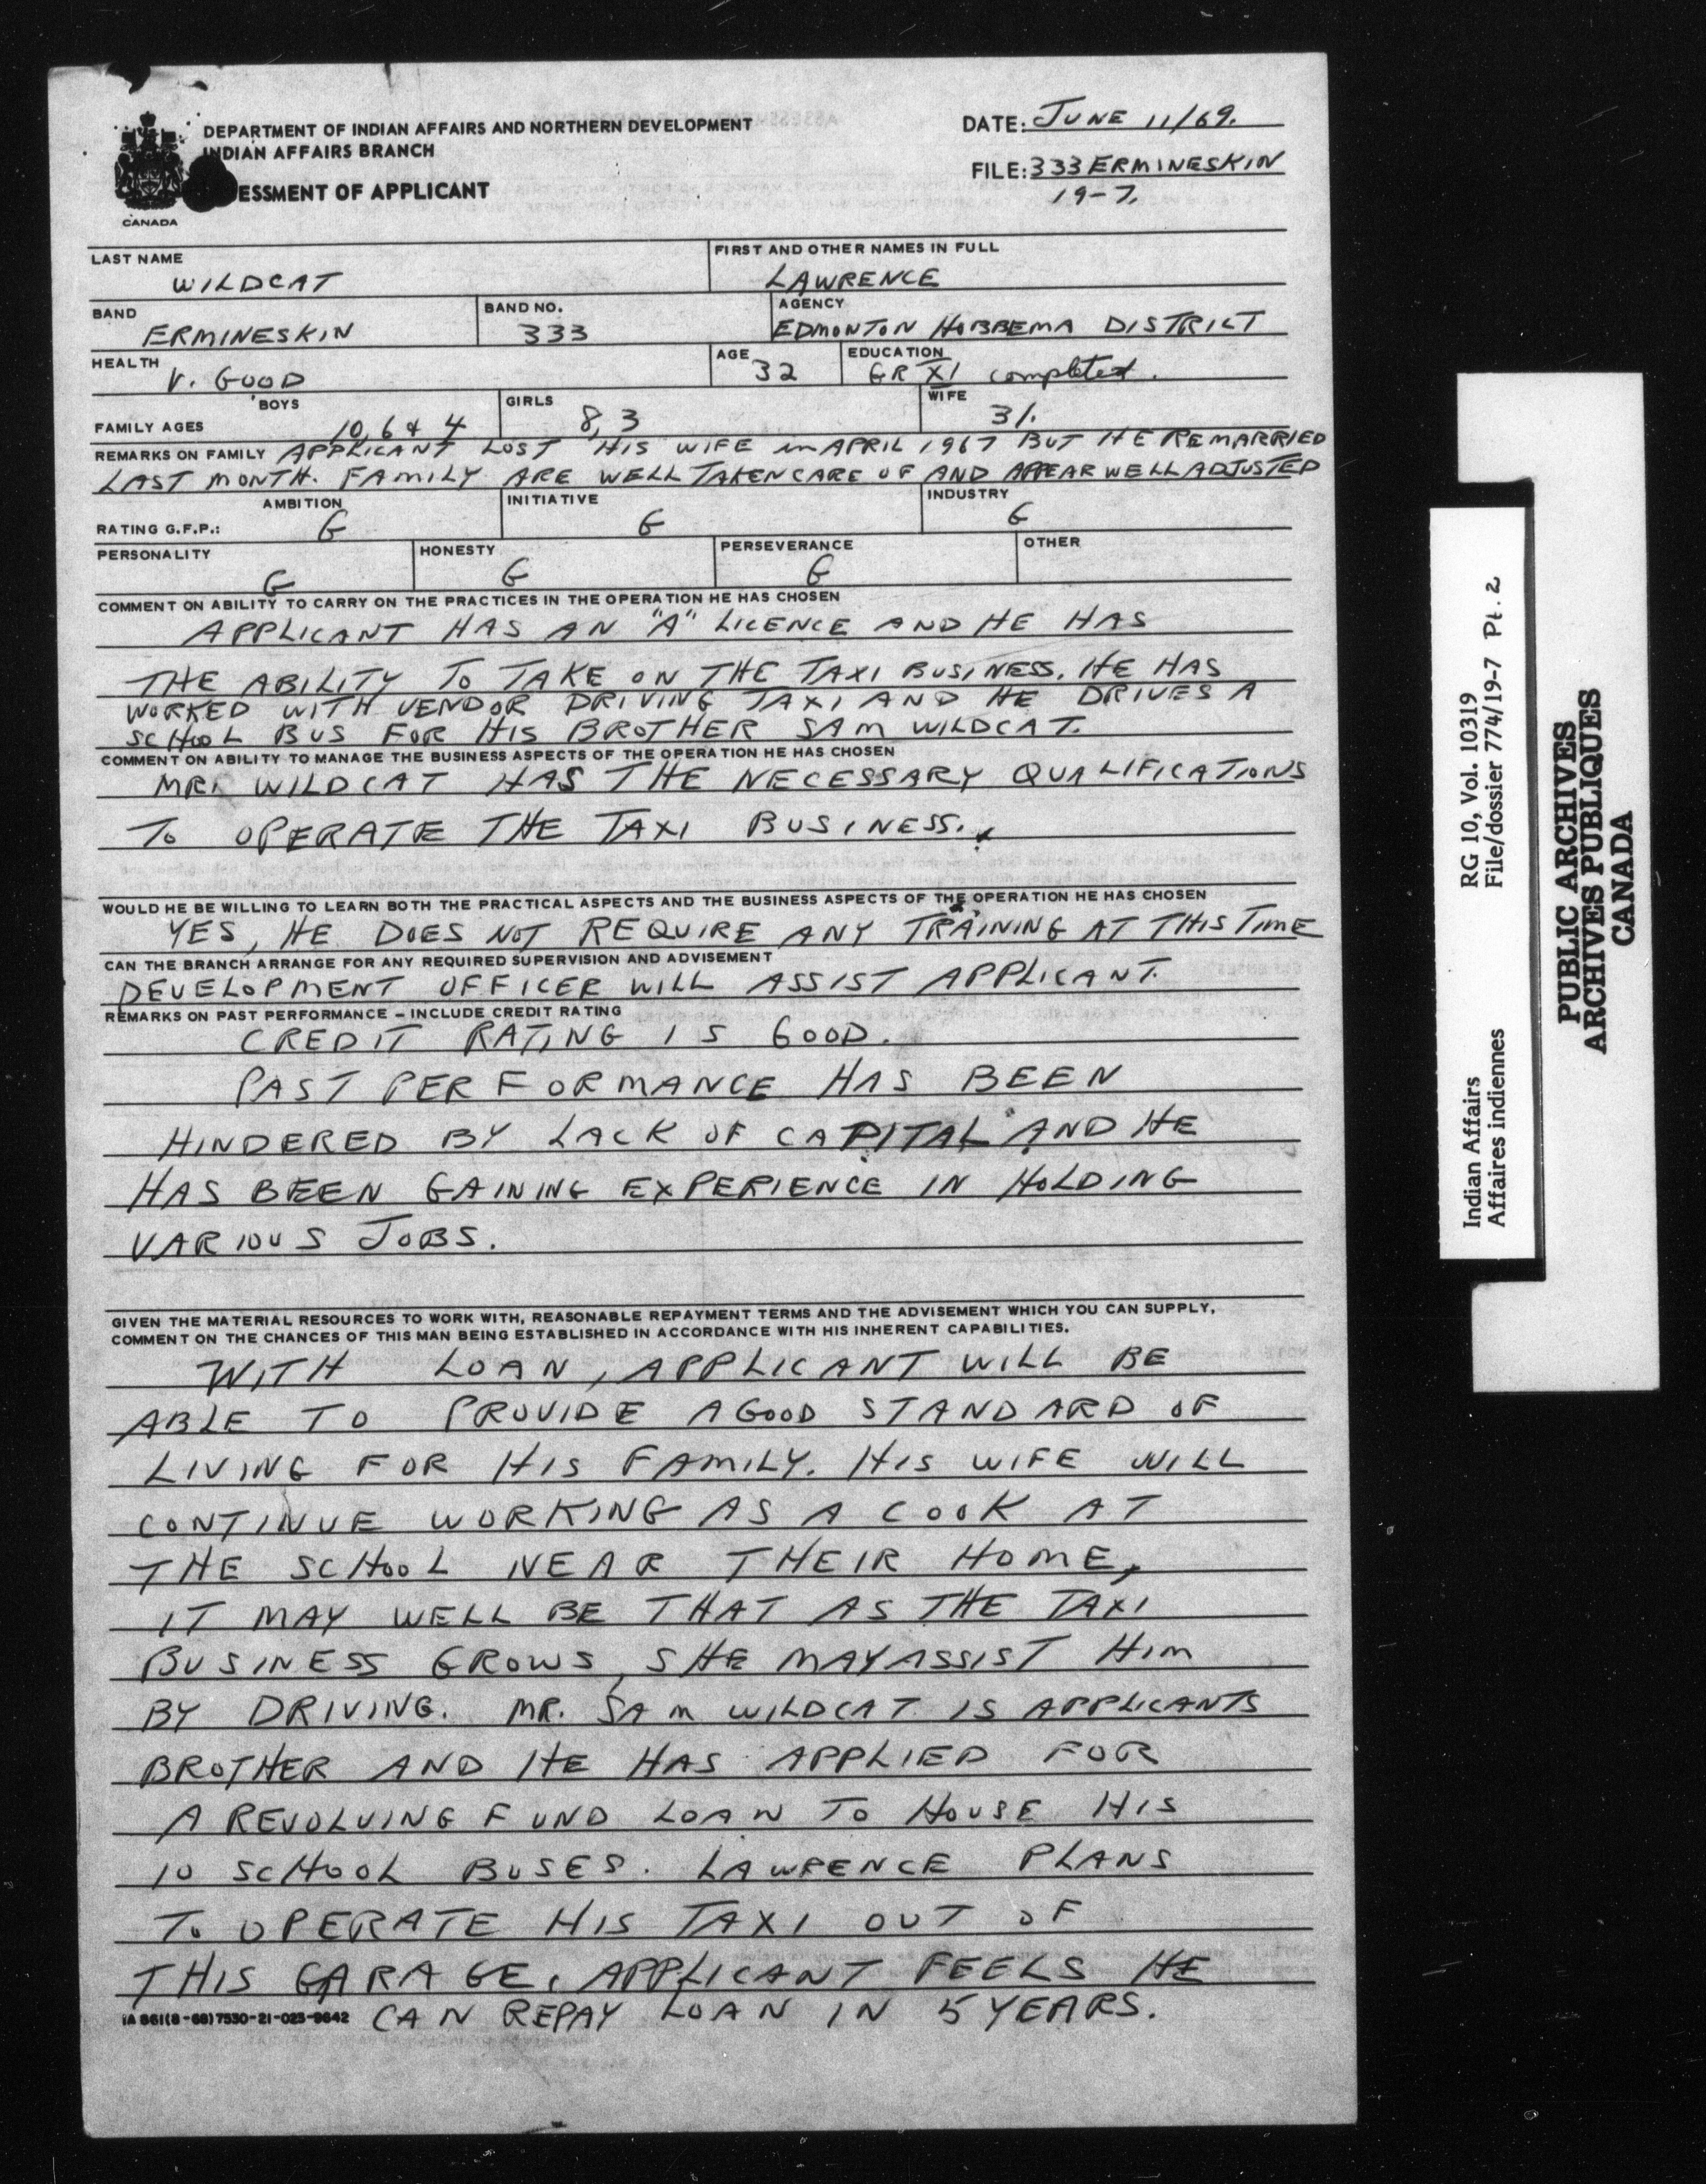 DEPARTMENT OF INDIAN AFFAIRS AND NORTHERN DEVELOPMENT
INDIAN AFFAIRS BRANCH
ESSMENT OF APPLICANT
CANADA
DATE: JUNE 11/69.
FILE: 333 ERMINESKIN
19-7.
LAST NAME
WILDCAT
FIRST AND OTHER NAMES IN FULL
LAWRENCE
BAND
ERMINESKIN
BAND NO.
333
AGENCY
EDMONTON HOBBEMA DISTRICT
HEALTH
V. GOOD
AGE
32
EDUCATION
GR XI completed.
FAMILY AGES
BOYS
10, 6 & 4
GIRLS
8, 3
WIFE
31.
REMARKS ON FAMILY APPLICANT LOST HIS WIFE in APRIL 1967 BUT HE REMARRIED
LAST MONTH. FAMILY ARE WELL TAKEN CARE OF AND APPEAR WELL ADJUSTED
RATING G.F.P.:
AMBITION
G
INITIATIVE
G
INDUSTRY
G
PERSONALITY
G
HONESTY
G
PERSEVERANCE
G
OTHER
COMMENT ON ABILITY TO CARRY ON THE PRACTICES IN THE OPERATION HE HAS CHOSEN
APPLICANT HAS AN "A" LICENCE AND HE HAS
THE ABILITY TO TAKE ON THE TAXI BUSINESS. HE HAS
WORKED WITH VENDOR DRIVING TAXI AND HE DRIVES A
SCHOOL BUS FOR HIS BROTHER SAM WILDCAT.
COMMENT ON ABILITY TO MANAGE THE BUSINESS ASPECTS OF THE OPERATION HE HAS CHOSEN
MR. WILDCAT HAS THE NECESSARY QUALIFICATIONS
TO OPERATE THE TAXI BUSINESS.
WOULD HE BE WILLING TO LEARN BOTH THE PRACTICAL ASPECTS AND THE BUSINESS ASPECTS OF THE OPERATION HE HAS CHOSEN
YES, HE DOES NOT REQUIRE ANY TRAINING AT THIS TIME
CAN THE BRANCH ARRANGE FOR ANY REQUIRED SUPERVISION AND ADVISEMENT
DEVELOPMENT OFFICER WILL ASSIST APPLICANT.
REMARKS ON PAST PERFORMANCE – INCLUDE CREDIT RATING
CREDIT RATING IS GOOD.
PAST PERFORMANCE HAS BEEN
HINDERED BY LACK OF CAPITAL AND HE
HAS BEEN GAINING EXPERIENCE IN HOLDING
VARIOUS JOBS.
GIVEN THE MATERIAL RESOURCES TO WORK WITH, REASONABLE REPAYMENT TERMS AND THE ADVISEMENT WHICH YOU CAN SUPPLY,
COMMENT ON THE CHANCES OF THIS MAN BEING ESTABLISHED IN ACCORDANCE WITH HIS INHERENT CAPABILITIES.
WITH LOAN, APPLICANT WILL BE
ABLE TO PROVIDE A GOOD STANDARD OF
LIVING FOR HIS FAMILY. HIS WIFE WILL
CONTINUE WORKING AS A COOK AT
THE SCHOOL NEAR THEIR HOME,
IT MAY WELL BE THAT AS THE TAXI
BUSINESS GROWS, SHE MAY ASSIST HIM
BY DRIVING. MR. SAM WILDCAT IS APPLICANTS
BROTHER AND HE HAS APPLIED FOR
A REVOLVING FUND LOAN TO HOUSE HIS
10 SCHOOL BUSES. LAWRENCE PLANS
TO OPERATE HIS TAXI OUT OF
THIS GARAGE. APPLICANT FEELS HE
IA 861(8-68) 7530-21-023-9642 CAN REPAY LOAN IN 5 YEARS.
Indian Affairs RG 10, Vol. 10319
Affaires indiennes File/dossier 774/19-7 Pt. 2
PUBLIC ARCHIVES
ARCHIVES PUBLIQUES
CANADA